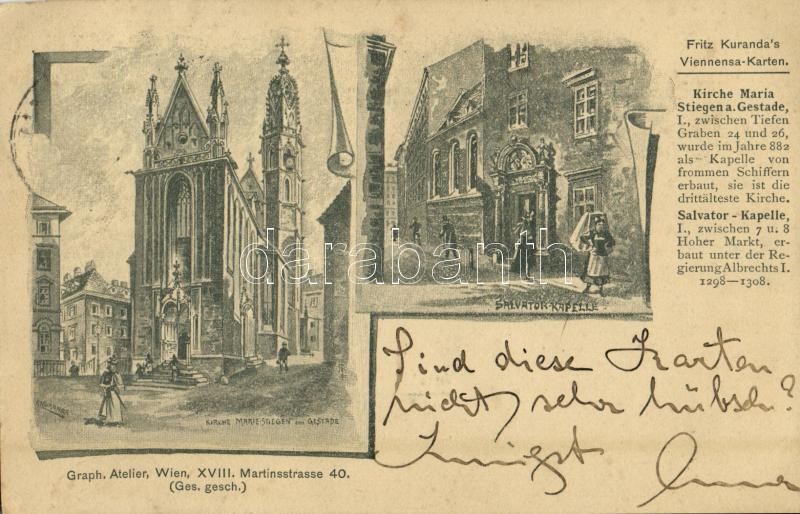 Fritz Kuranda's
Viennensa-Karten.
Kirche Maria
Stiegen a. Gestade,
I., zwischen Tiefen
Graben 24 und 26,
wurde im Jahre 882
als Kapelle von
frommen Schiffern
erbaut, sie ist die
drittälteste Kirche.
Salvator-Kapelle,
I., zwischen 7 u. 8
Hoher Markt, er-
baut unter der Re-
gierung Albrechts I.
1298—1308.
darabanth
SALVATOR-KAPELLE
KIRCHE MARIE-STIEGEN am GESTADE
Sind diese Karten
nicht sehr hübsch?
Innigst
Graph. Atelier, Wien, XVIII. Martinsstrasse 40.
(Ges. gesch.)